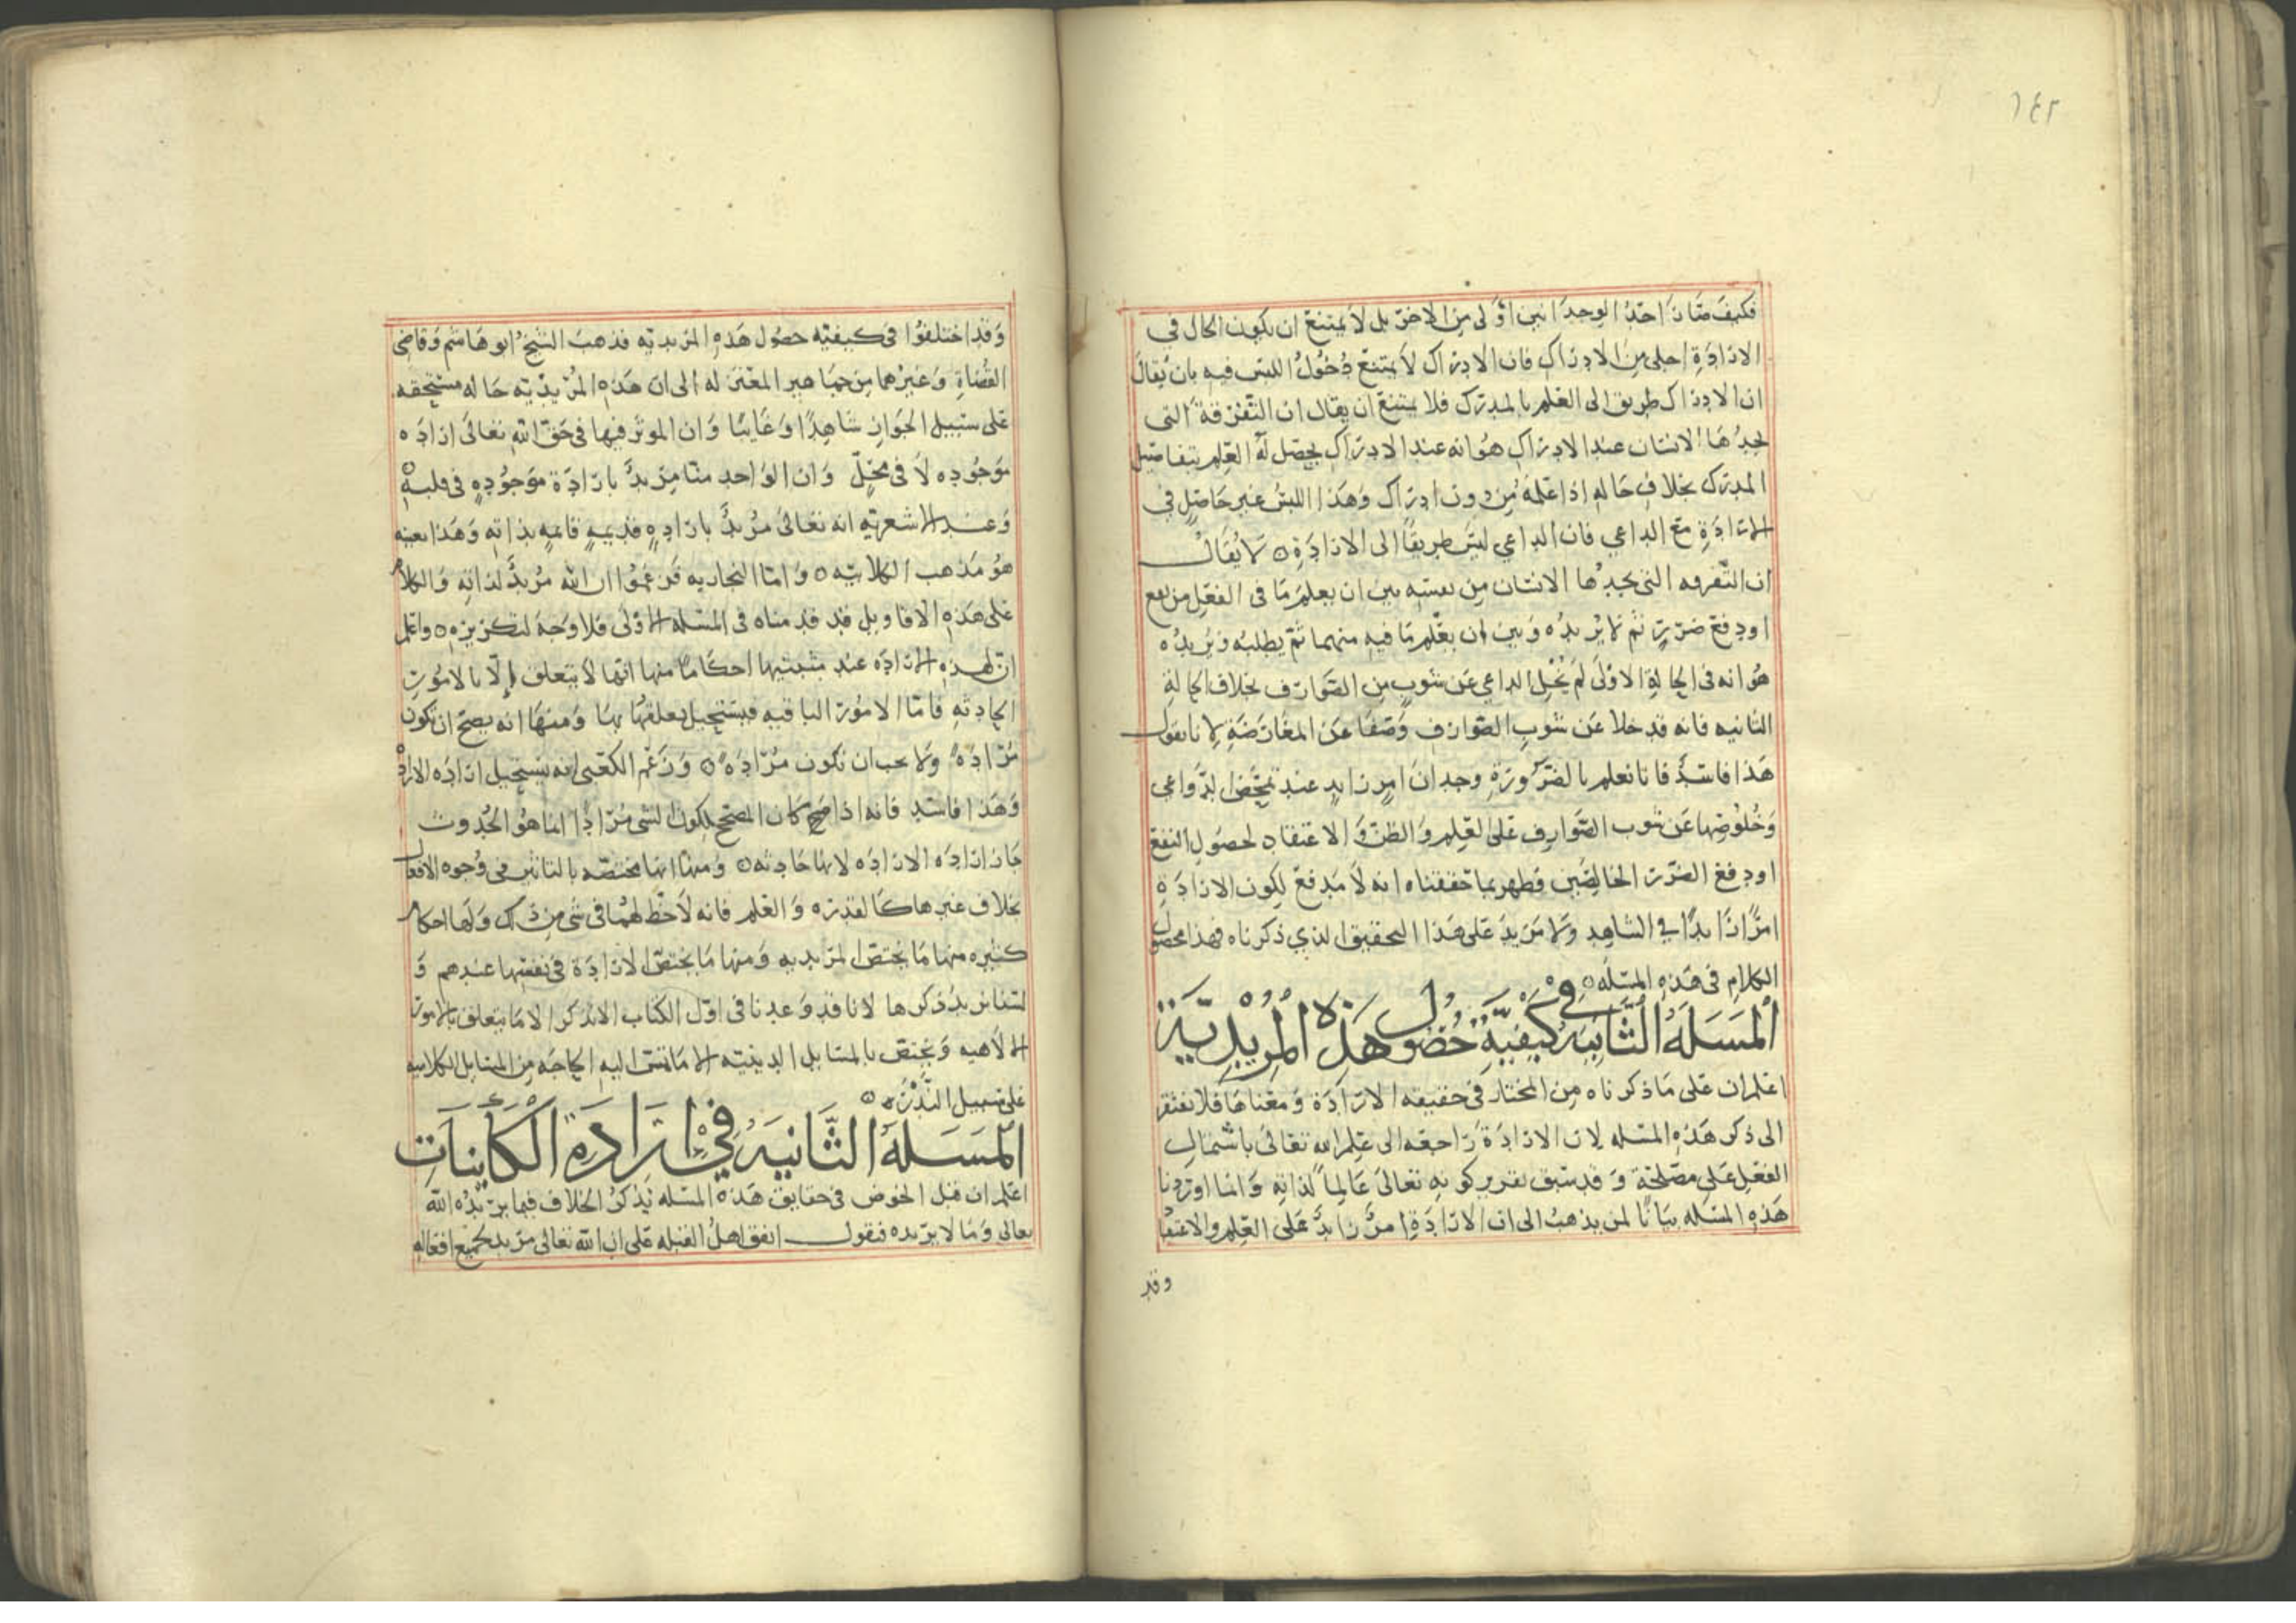 ١٤٢
فكيف صار احد الوجدانين اولى من الاخر بل لا يمتنع ان يكون الحال في
الارادة اجلى من الادراك فان الادراك لا يمتنع دخول اللبس فيه بان يقال
ان الادراك طريق الى العلم بالمدرك فلا يمتنع ان يقال ان التفرقة التي
يجدها الانسان عند الادراك هو انه عند الادراك يحصل له العلم بتفاصيل
المدرك بخلاف حاله اذا علمه من دون ادراك وهذا اللبس غير حاصل في
الارادة مع الداعي فان الداعي ليس طريقا الى الارادة ه لا يقال
ان التفرقه التي يجدها الانسان من نفسه بين ان يعلم ما في الفعل من نفع
او دفع ضرر ثم لا يريده وبين ان يعلم ما فيه منهما ثم يطلبه ويريده
هو انه في الحالة الاولى لم يخل الداعي عن شوب من الصوارف بخلاف الحالة
الثانيه فانه قد خلا عن شوب الصوارف وصفا عن المعارضة لانا نقول
هذا فاسد فانا نعلم بالضرورة وجدان امر زايد عند تمحض الدواعي
وخلوصها عن شوب الصوارف على العلم والظن والاعتقاد لحصول النفع
او دفع الضرر الخالصين فظهر بما حققناه انه لا مدفع لكون الارادة
امرا زايدا في الشاهد ولا مزيد على هذا التحقيق الذي ذكرناه فهذا محصول
الكلام في هذه المسله ه
المسله الثانيه في كيفية حصول هذه المريدية
اعلم ان على ما ذكرناه من المختار في حقيقه الارادة ومعناها فلا نفتقر
الى ذكر هذه المسله لان الارادة راجعه الى علم الله تعالى باشتمال
الفعل على مصلحة وقد سبق تقرير كونه تعالى عالما لذاته وانما اوردنا
هذه المسله بيانا لمن يذهب الى ان الارادة امر زايد على العلم والاعتقا
وقد
وقد اختلفوا في كيفيه حصول هذه المريديه فذهب الشيخ ابو هاشم وقاضي
القضاة وغيرهما من جماهير المعتزله الى ان هذه المريديه حاله مستحقه
على سبيل الجواز شاهدا وغايبا وان الموثر فيها في حق الله تعالى اراده
موجوده لا في محل وان الواحد منا مريد بارادة موجوده في قلبه
وعند الاشعريه انه تعالى مريد باراده قديمه قايمه بذاته وهذا بعينه
هو مذهب الكلابيه ه واما النجاريه فزعموا ان الله مريد لذاته والكلام
على هذه الاقاويل قد قدمناه في المسله الاولى فلا وجه لتكريره ه واعلم
ان لهذه الاراده عند مثبتيها احكاما منها انها لا يتعلق الا بالامور
الحادثه فاما الامور الباقيه فيستحيل تعلقها بها ومنها انه يصح ان تكون
مراده ولا يجب ان تكون مراده ه وزعم الكعبي انه يستحيل اراده الاراد
وهذا فاسد فانه اذا صح كان المصحح لكون الشي مرادا انما هو الحدوث
جاز اراده الاراده لانها حادثه ه ومنها انها مختصه بالتاثير في وجوه الافعال
بخلاف غيرها كالقدره والعلم فانه لا حظ لهما في شي من ذلك ولها احكام
كثيره منها ما يختص المريديه ومنها ما يختص الارادة في نفسها عندهم و
لسنا نريد ذكرها لانا قد وعدنا في اول الكتاب الا نذكر الا ما يتعلق بالامور
الالاهيه ويختص بالمسايل الدينيه الا ما تمس اليه الحاجه من المسايل الكلاميه
على سبيل الندره ه
المسله الثانيه في ارادة الكاينات
اعلم ان قبل الخوض في حقايق هذه المسله نذكر الخلاف فيما يريده الله
تعالى وما لا يريده فنقول اتفق اهل القبله على ان الله تعالى مريد لجميع افعاله